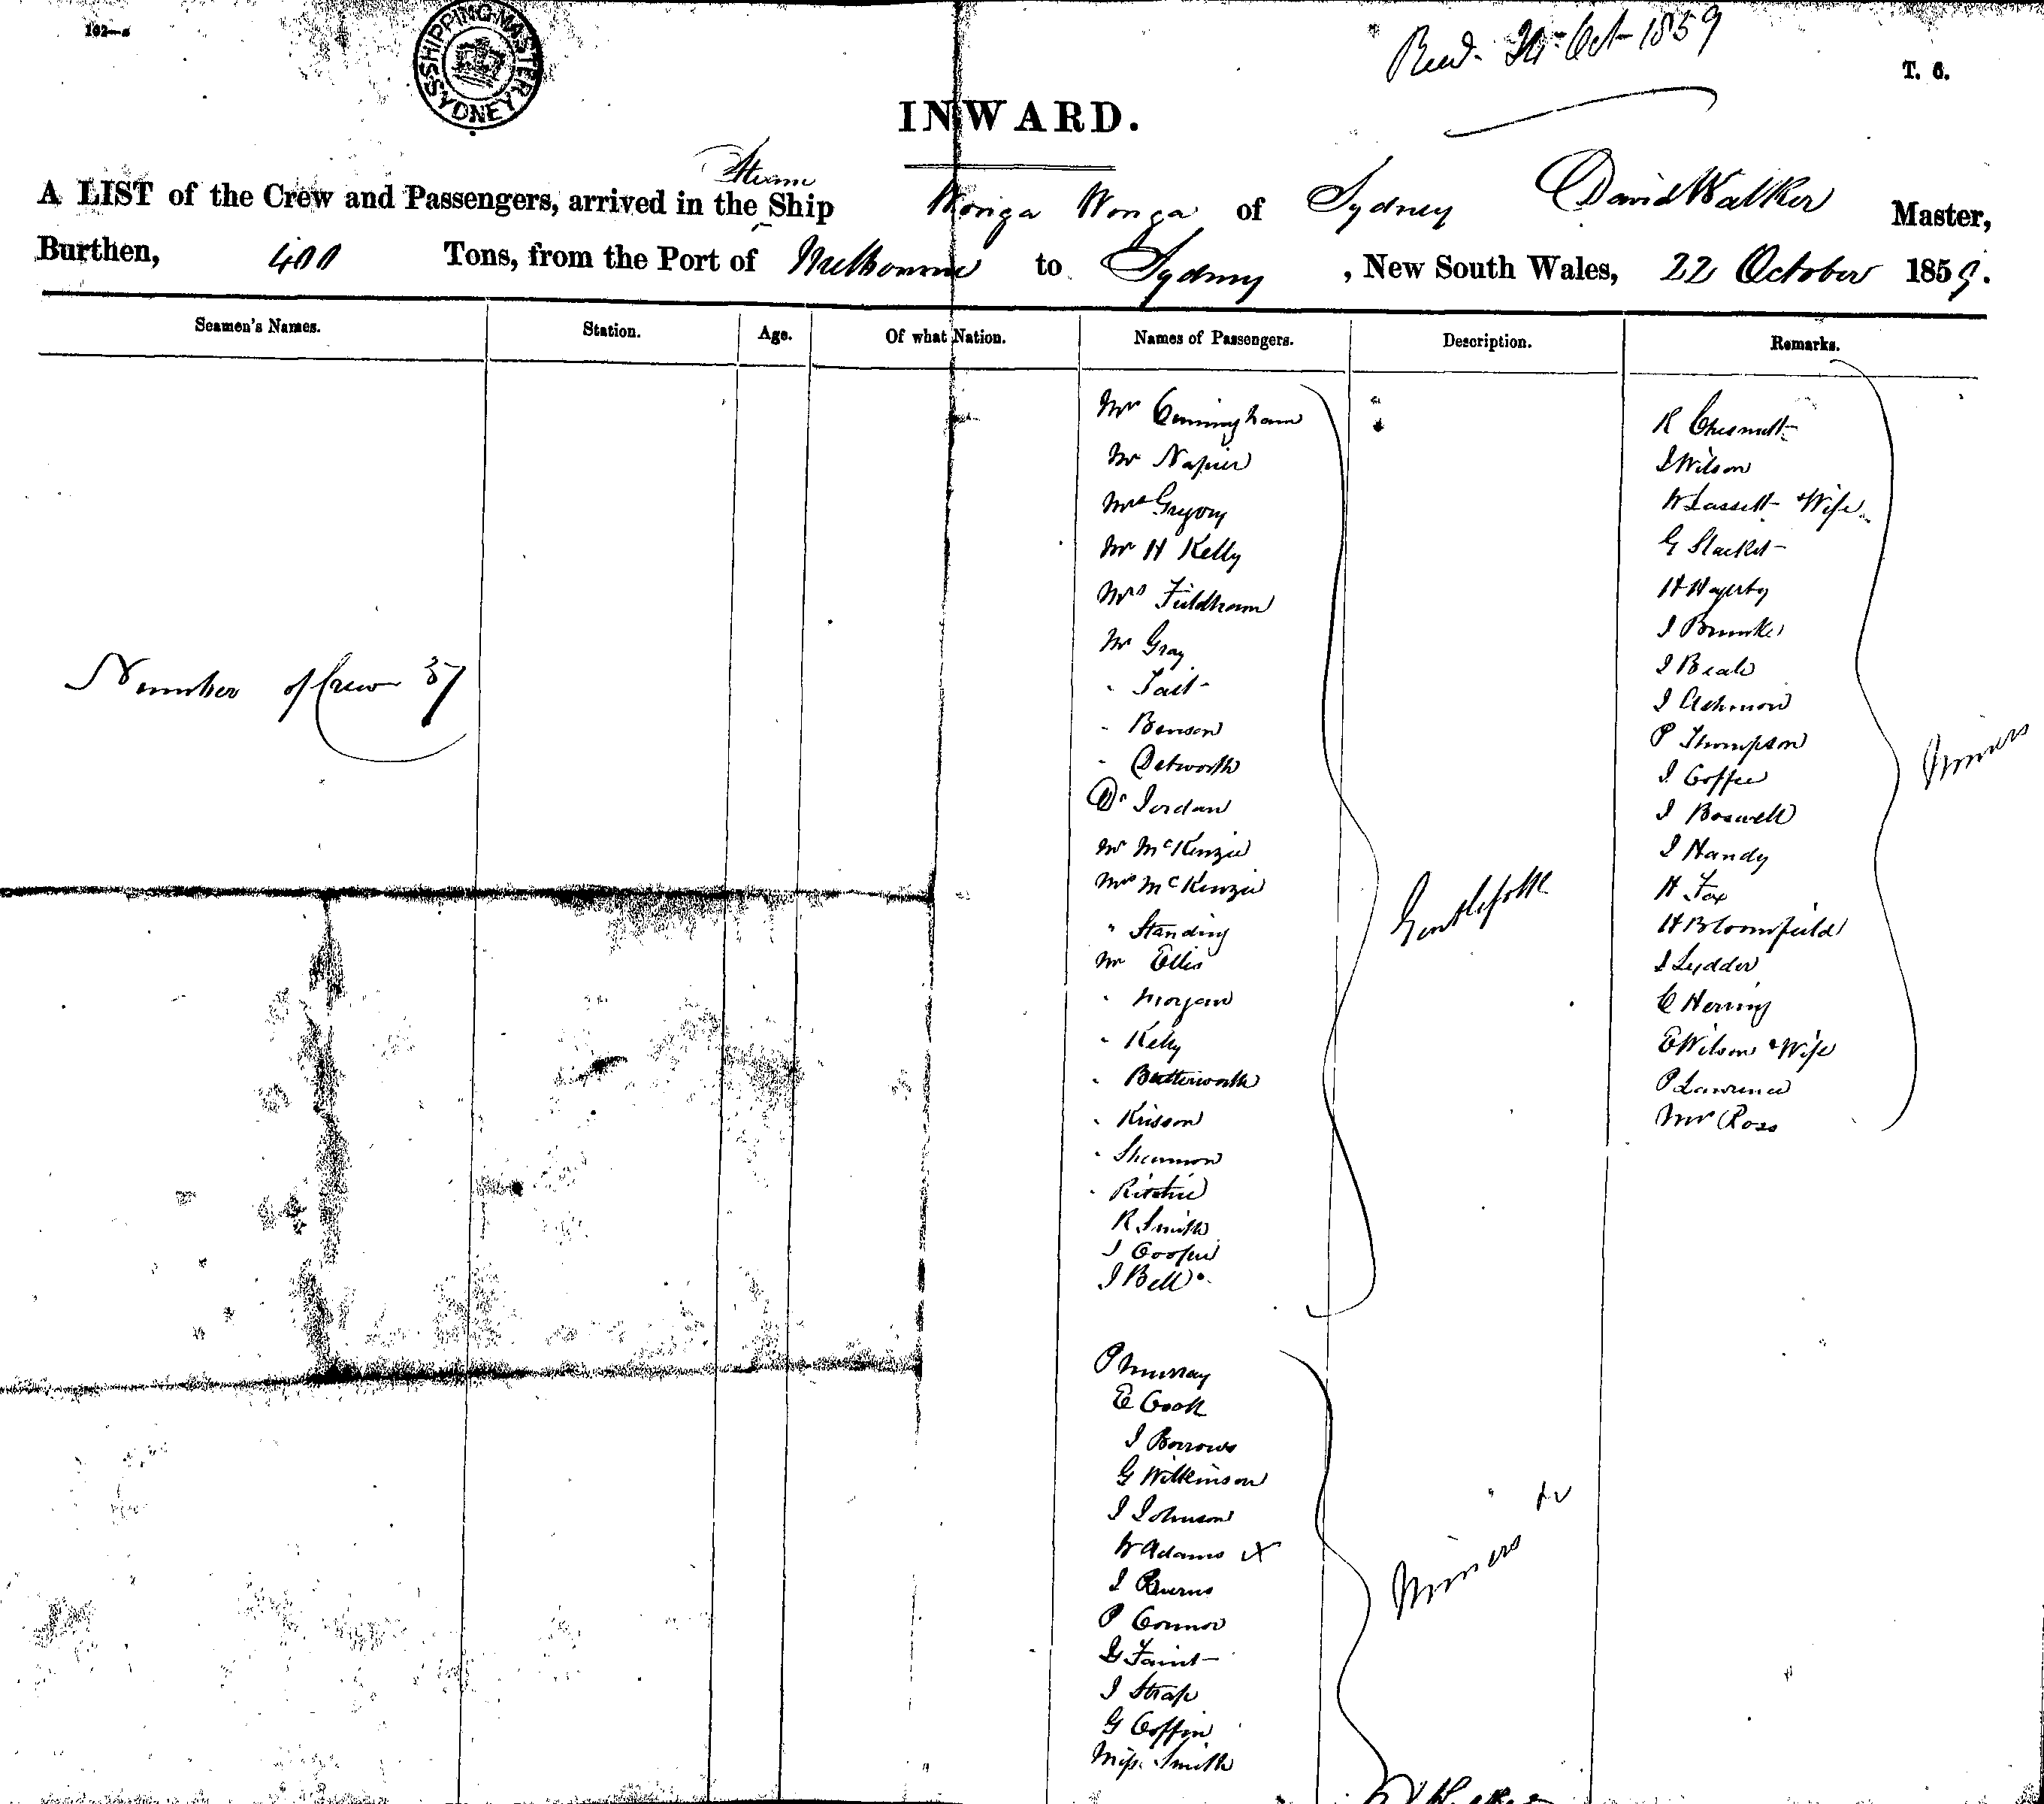 102—a
SHIPPING MASTER SYDNEY
Recd. 24 Oct 1859
T. 6.
INWARD.
Steam
A LIST of the Crew and Passengers, arrived in the Ship Wonga Wonga of Sydney David Walker Master,
Burthen, 400 Tons, from the Port of Melbourne to Sydney, New South Wales, 22 October 1859.
Seamen's Names. Station. Age. Of what Nation. Names of Passengers. Description. Remarks.
Number of Crew 37
Mr Cunningham
Mr Napier
Mrs Gregory
Mr H Kelly
Mrs Fieldham
Mr Gray
" Tait
" Benson
" Detworth
Dr Jordan
Mr McKenzie
Mrs McKenzie
" Standing
Mr Ellis
" Morgan
" Kelly
" Butterworth
" Krisson
" Shannon
" Ritchie
R Smith
J Cooper
J Bell
Gentlefolk
P Murray
E Cook
J Borrows
G Wilkinson
J Johnson
W Adams X
J Burns
P Connor
G Faint
J Strap
G Coffin
Miss Smith
Miners &c
R Chesnutt
J Wilson
W Lassett & Wife
G Slacket
H Hagerty
J Brunker
J Beale
J Ashmore
P Thompson
J Coffee
J Boswell
J Handy
H Fox
H Bloomfield
J Lydder
C Herring
E Wilson & Wife
P Lawrence
Mr Ross
Miners